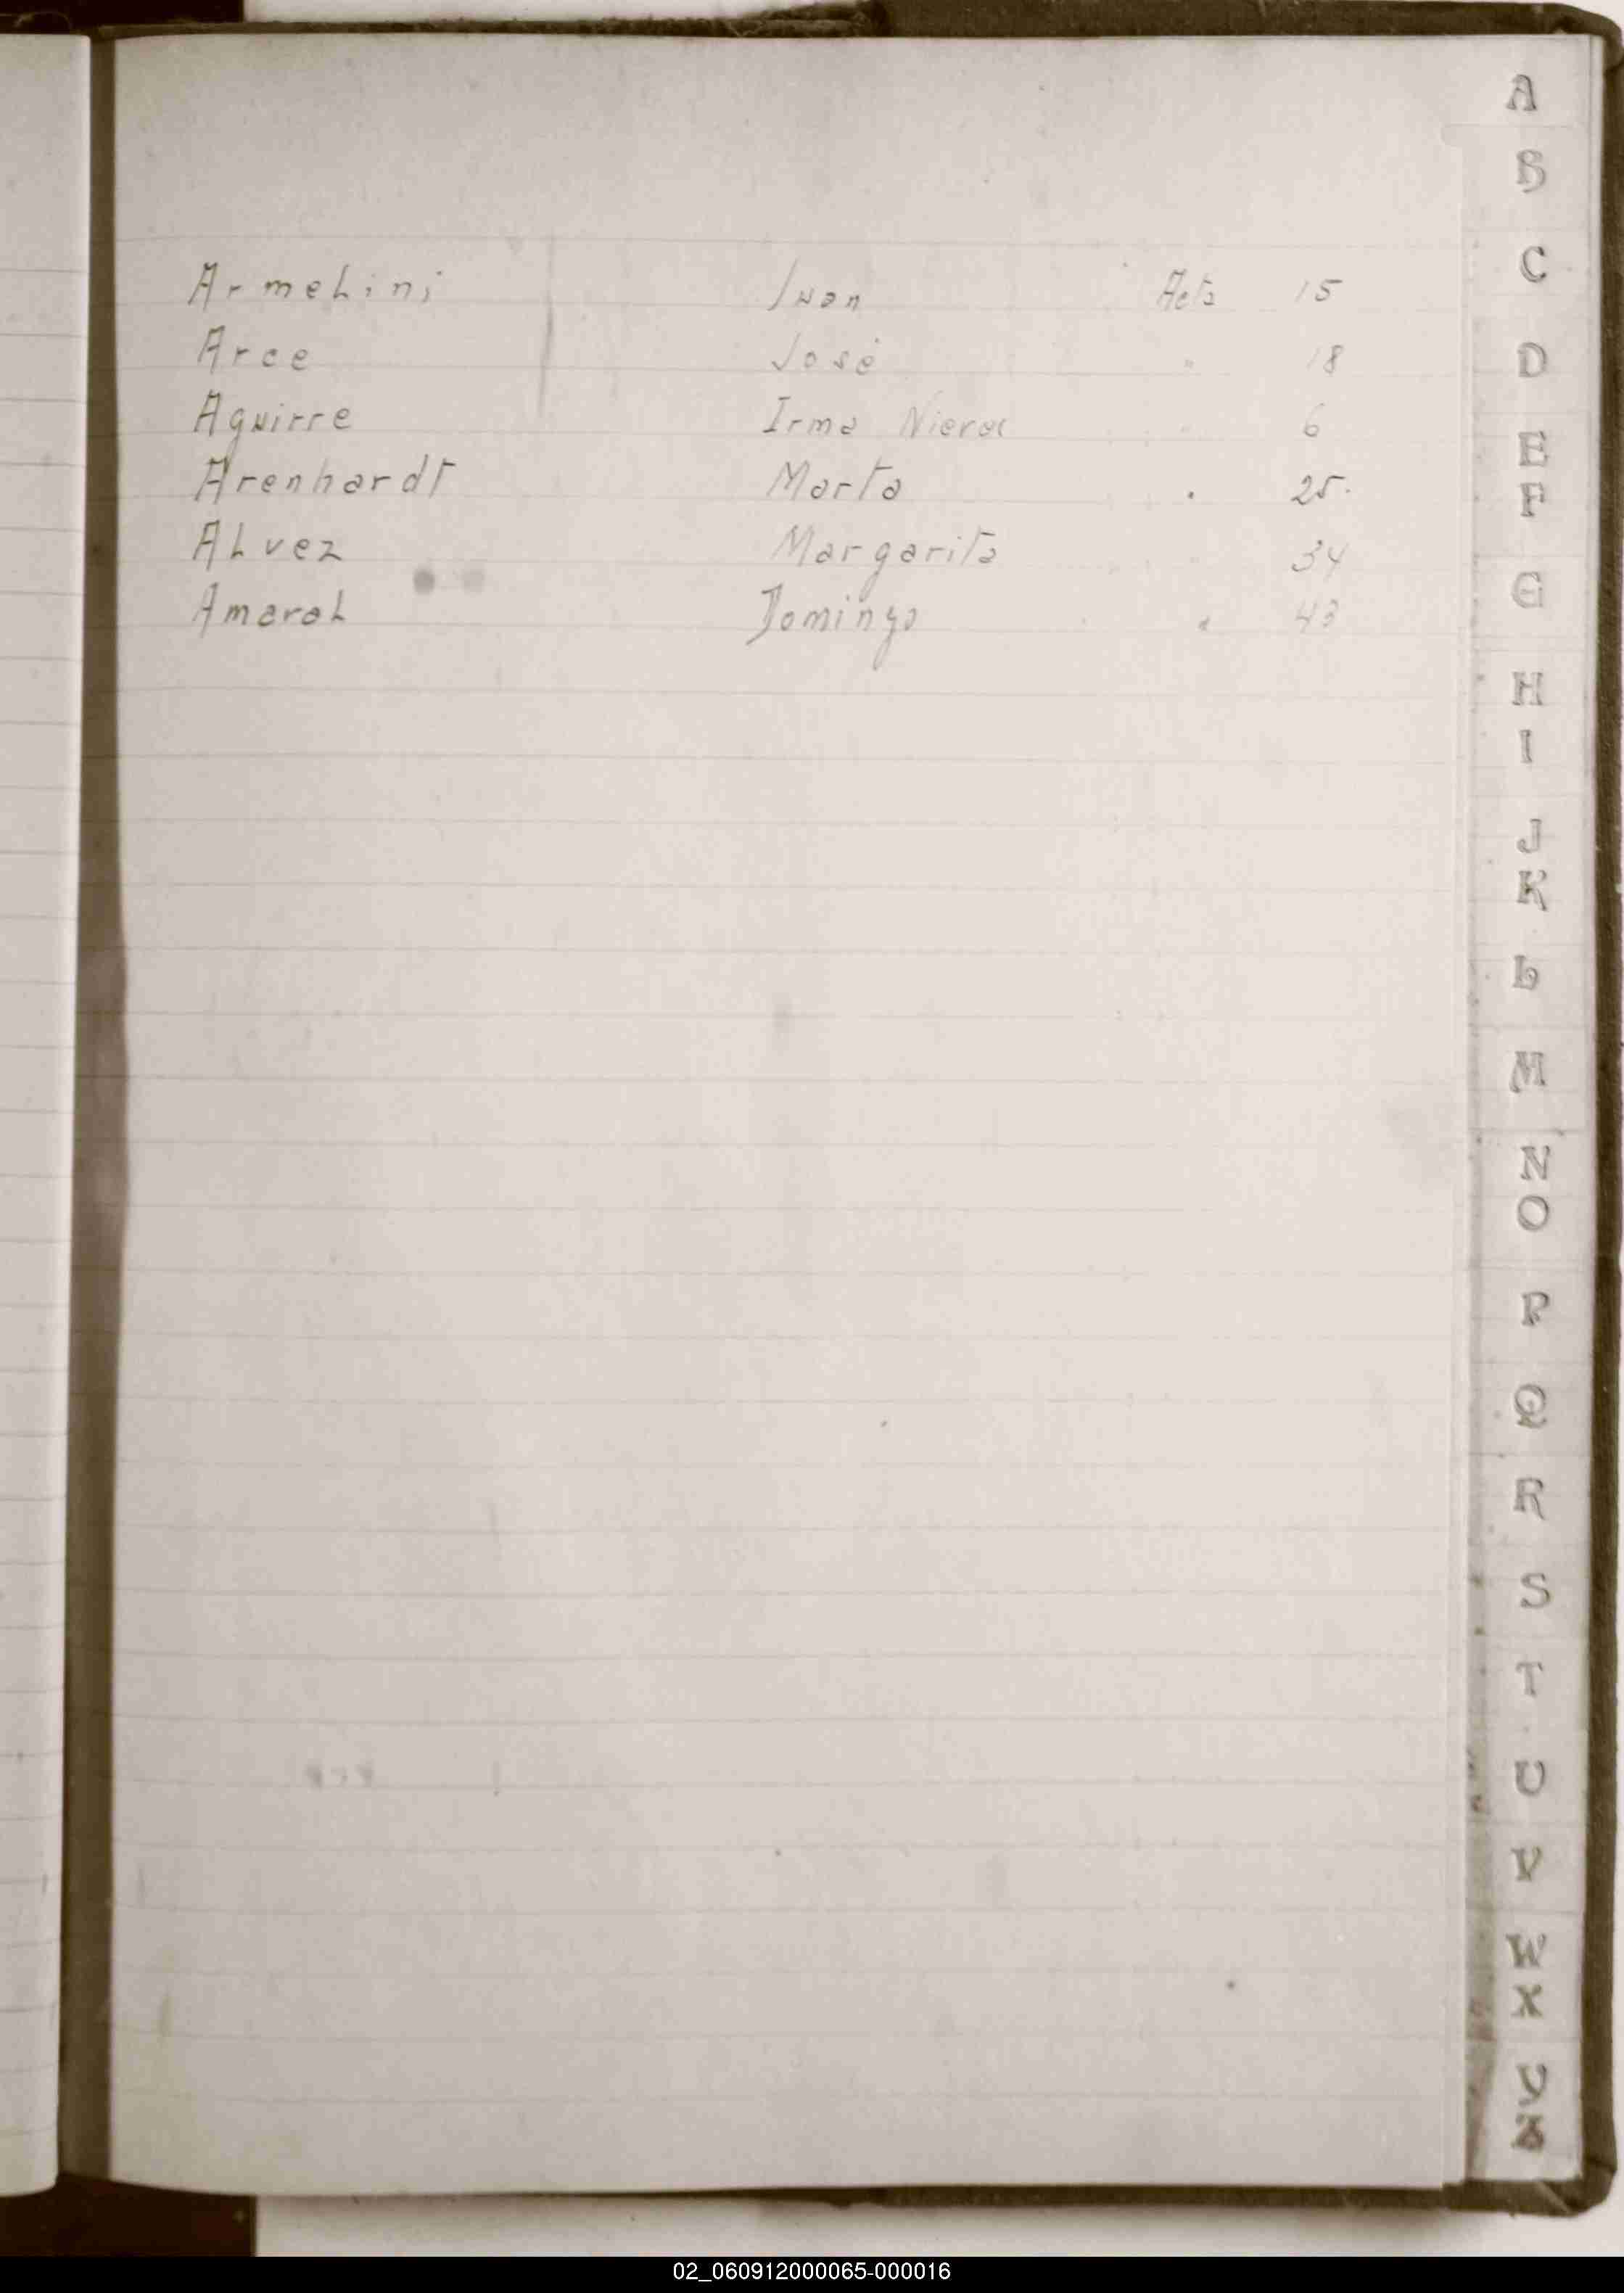 Armelini Juan Acta 15
Arce José " 18
Aguirre Irma " 6
Arenhardt Marta " 25.
Alvez Margarita " 34
Amaral Domingo " 43
A
B
C
D
E
F
G
H
I
J
K
L
M
N
O
P
Q
R
S
T
U
V
W
X
Y
Z
02_060912000065-000016